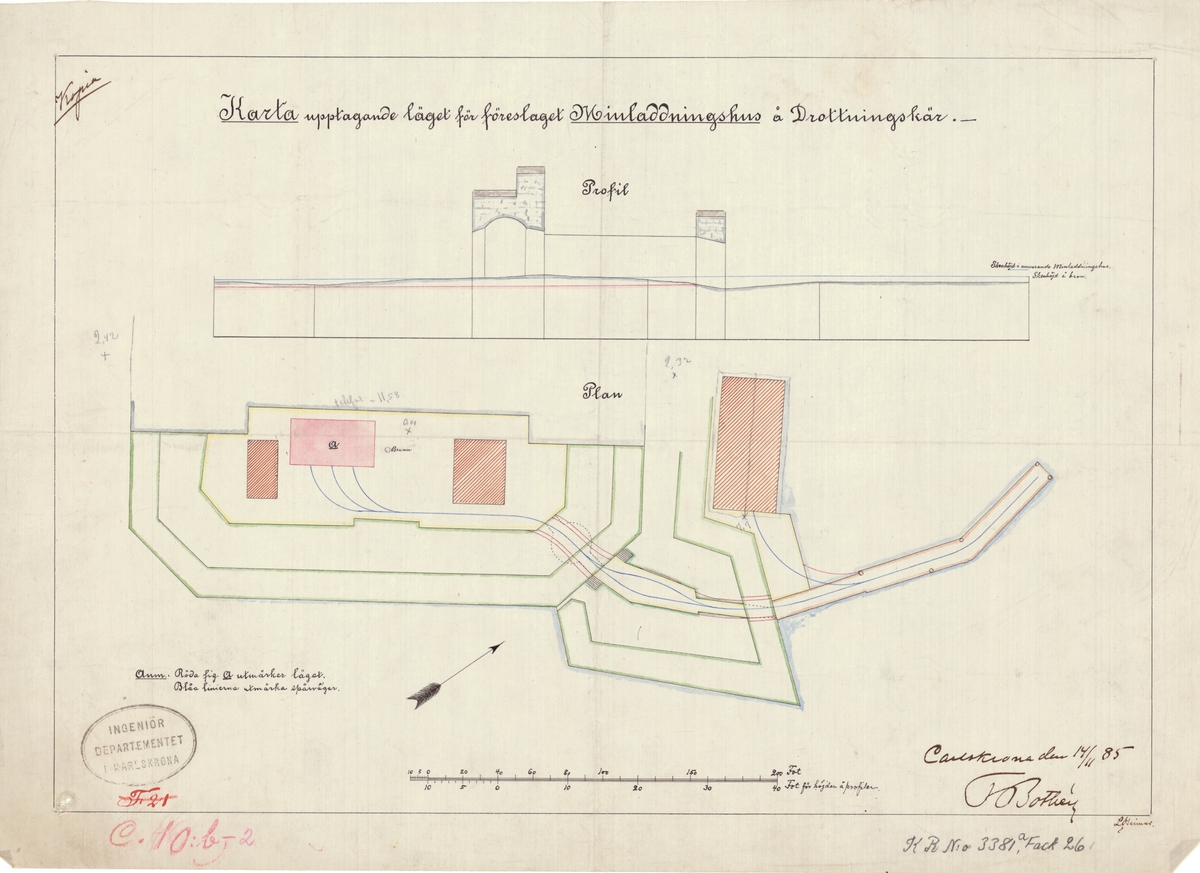 Kopia
Karta upptagande läget för föreslaget Minladdningshus å Drottningskär.
Profil
Skenhöjd i nuvarande Minladdningshus.
Skenhöjd å bron.
2,42
2,32
Plan
11,58
a
Brunn
Anm. Röda fig. a utmärker läget.
Blåa linierna utmärka spårvägar.
INGENIÖR
DEPARTEMENTET
I KARLSKRONA
F 21
C. 10: b-2
10 5 0 20 40 60 80 100 150 200 Fot
10 5 0 10 20 30 40 Fot för höjden å profilen.
Carlskrona den 14/11 85
F Bothén
K R No 3381a, Fack 26